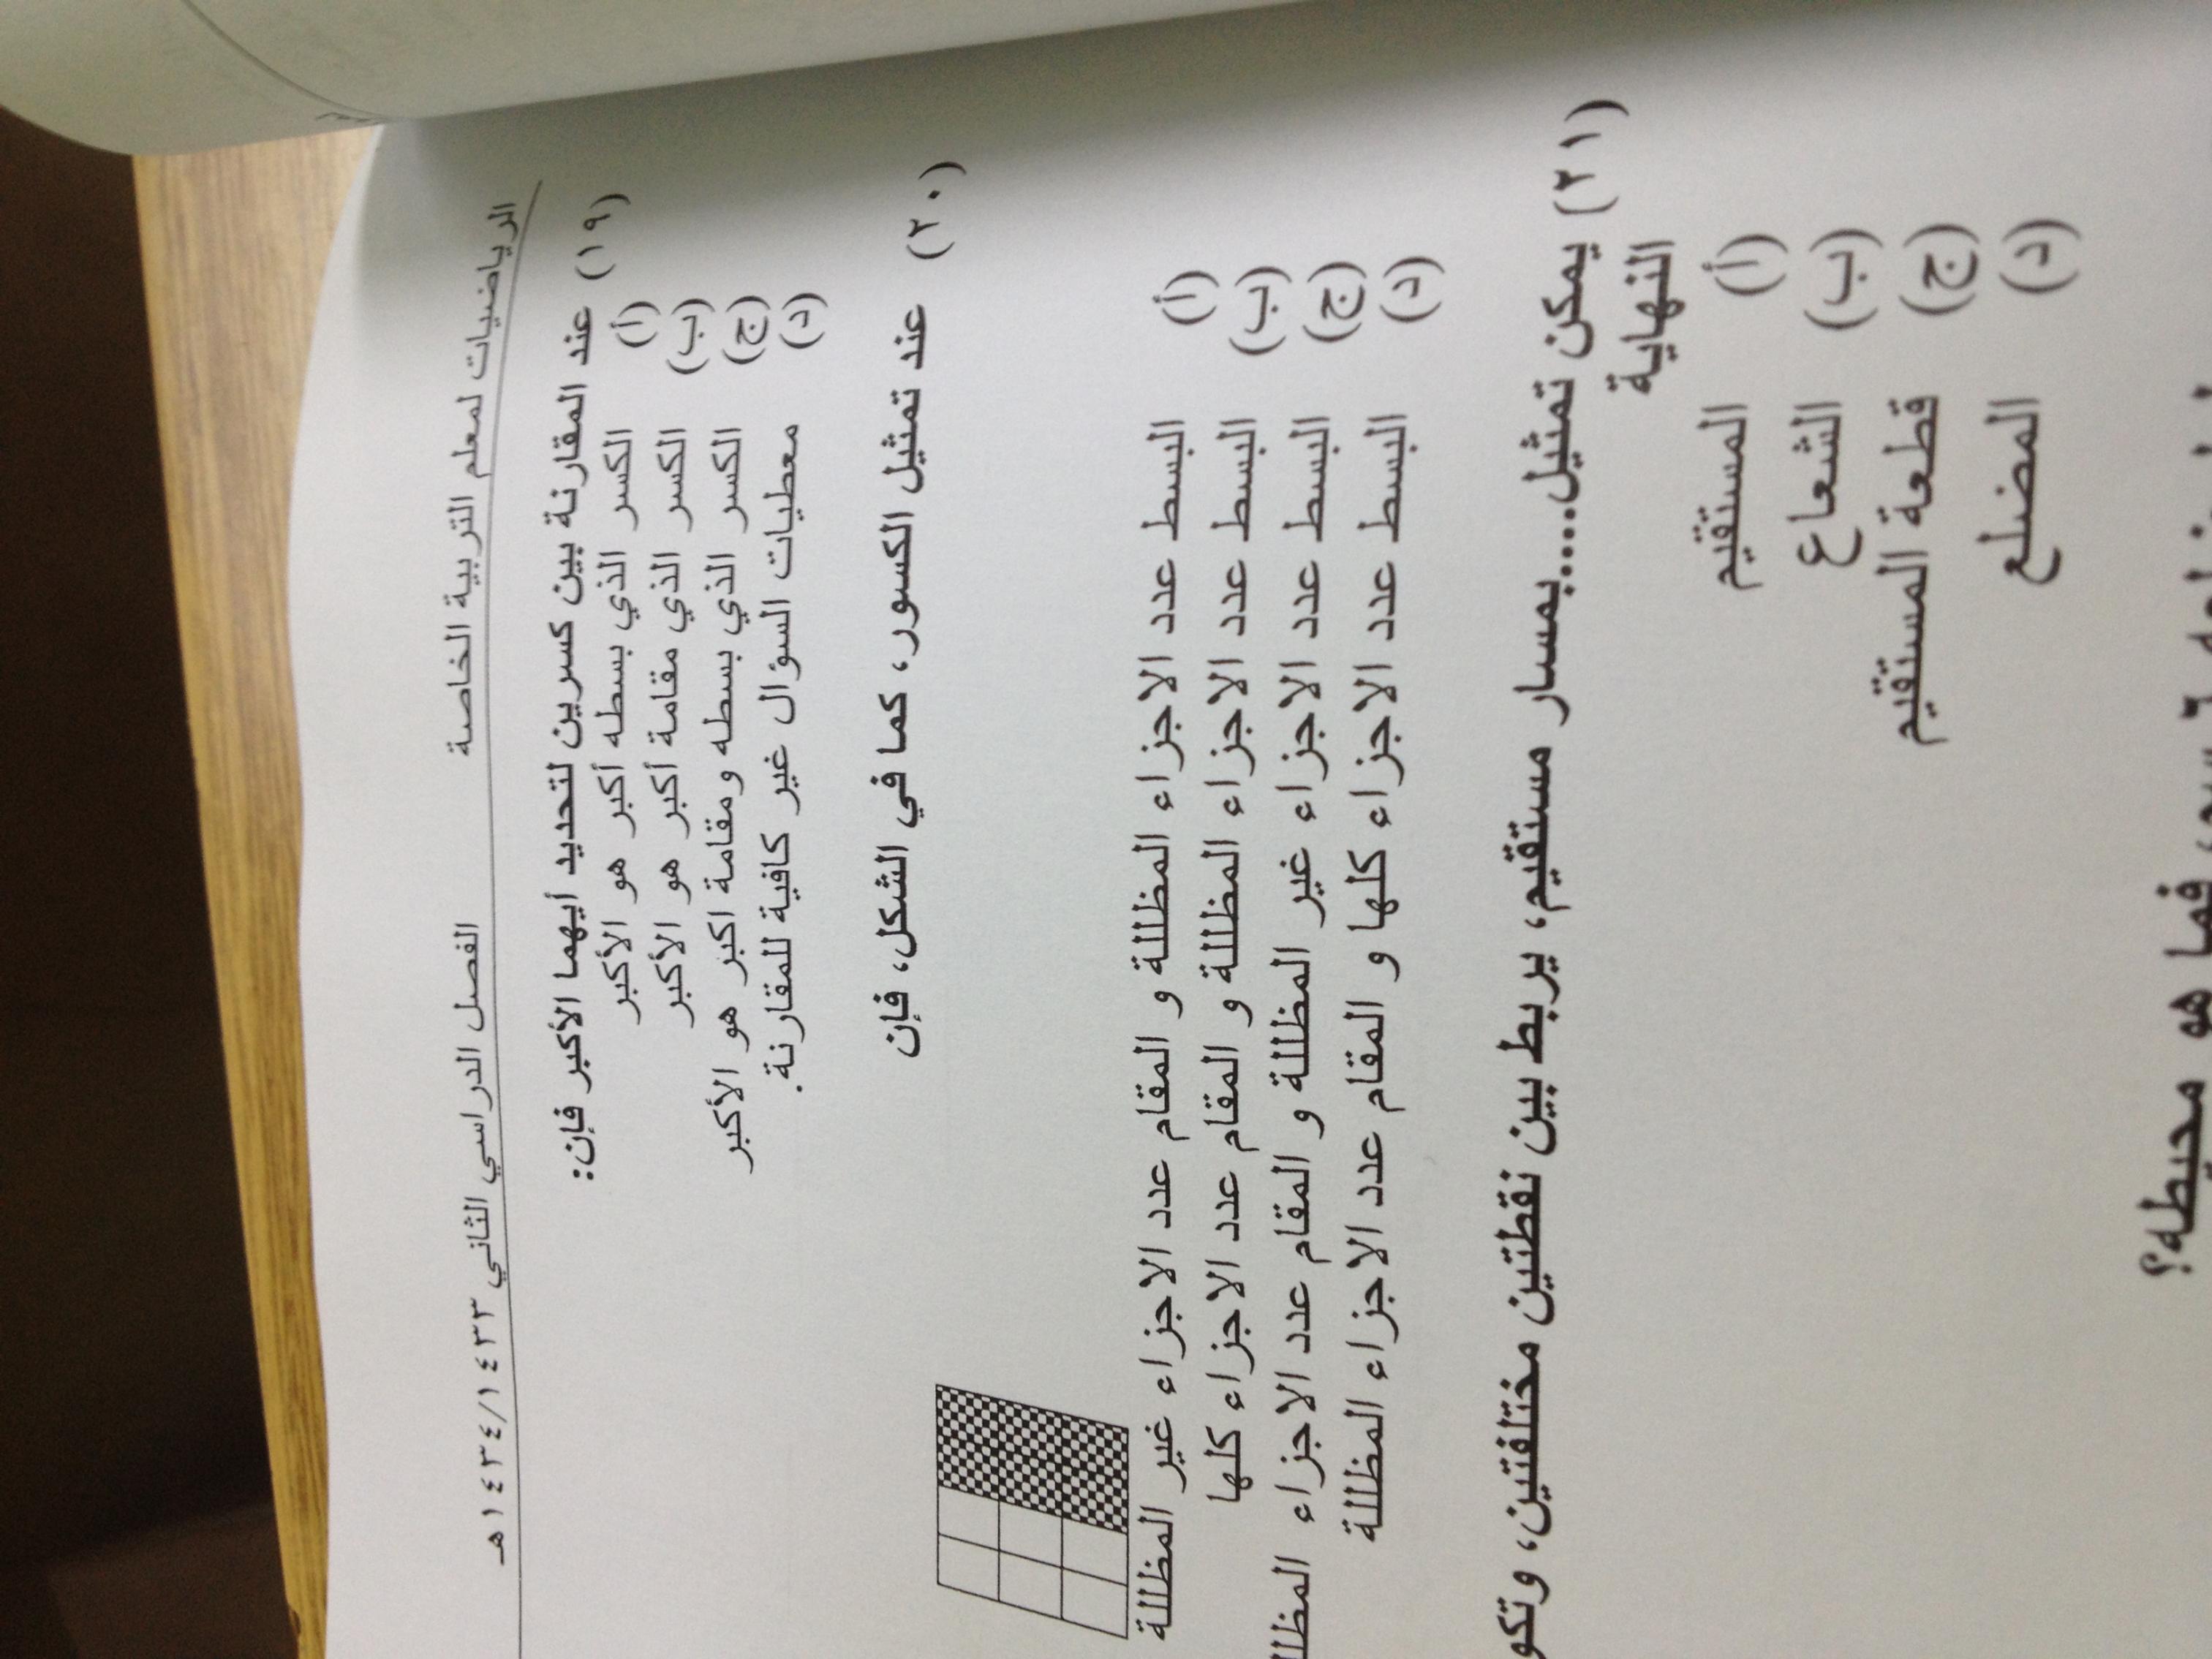 الرياضيات لمعلم التربية الخاصة الفصل الدراسي الثاني ١٤٣٤/١٤٣٣هـ
(١٩) عند المقارنة بين كسرين لتحديد أيهما الأكبر فإن:
(أ) الكسر الذي بسطه أكبر هو الأكبر
(ب) الكسر الذي مقامة أكبر هو الأكبر
(ج) الكسر الذي بسطه ومقامة اكبر هو الأكبر
(د) معطيات السؤال غير كافية للمقارنة.
(٢٠) عند تمثيل الكسور، كما في الشكل، فإن
(أ) البسط عدد الاجزاء المظللة و المقام عدد الاجزاء غير المظللة
(ب) البسط عدد الاجزاء المظللة و المقام عدد الاجزاء كلها
(ج) البسط عدد الاجزاء غير المظللة و المقام عدد الاجزاء
(د) البسط عدد الاجزاء كلها و المقام عدد الاجزاء المظللة
(٢١) يمكن تمثيل.....بمسار مستقيم، يربط بين نقطتين مختلفتين،
النهاية
(أ) المستقيم
(ب) الشعاع
(ج) قطعة المستقيم
(د) المضلع
٦ سم، فما هو محيطه؟